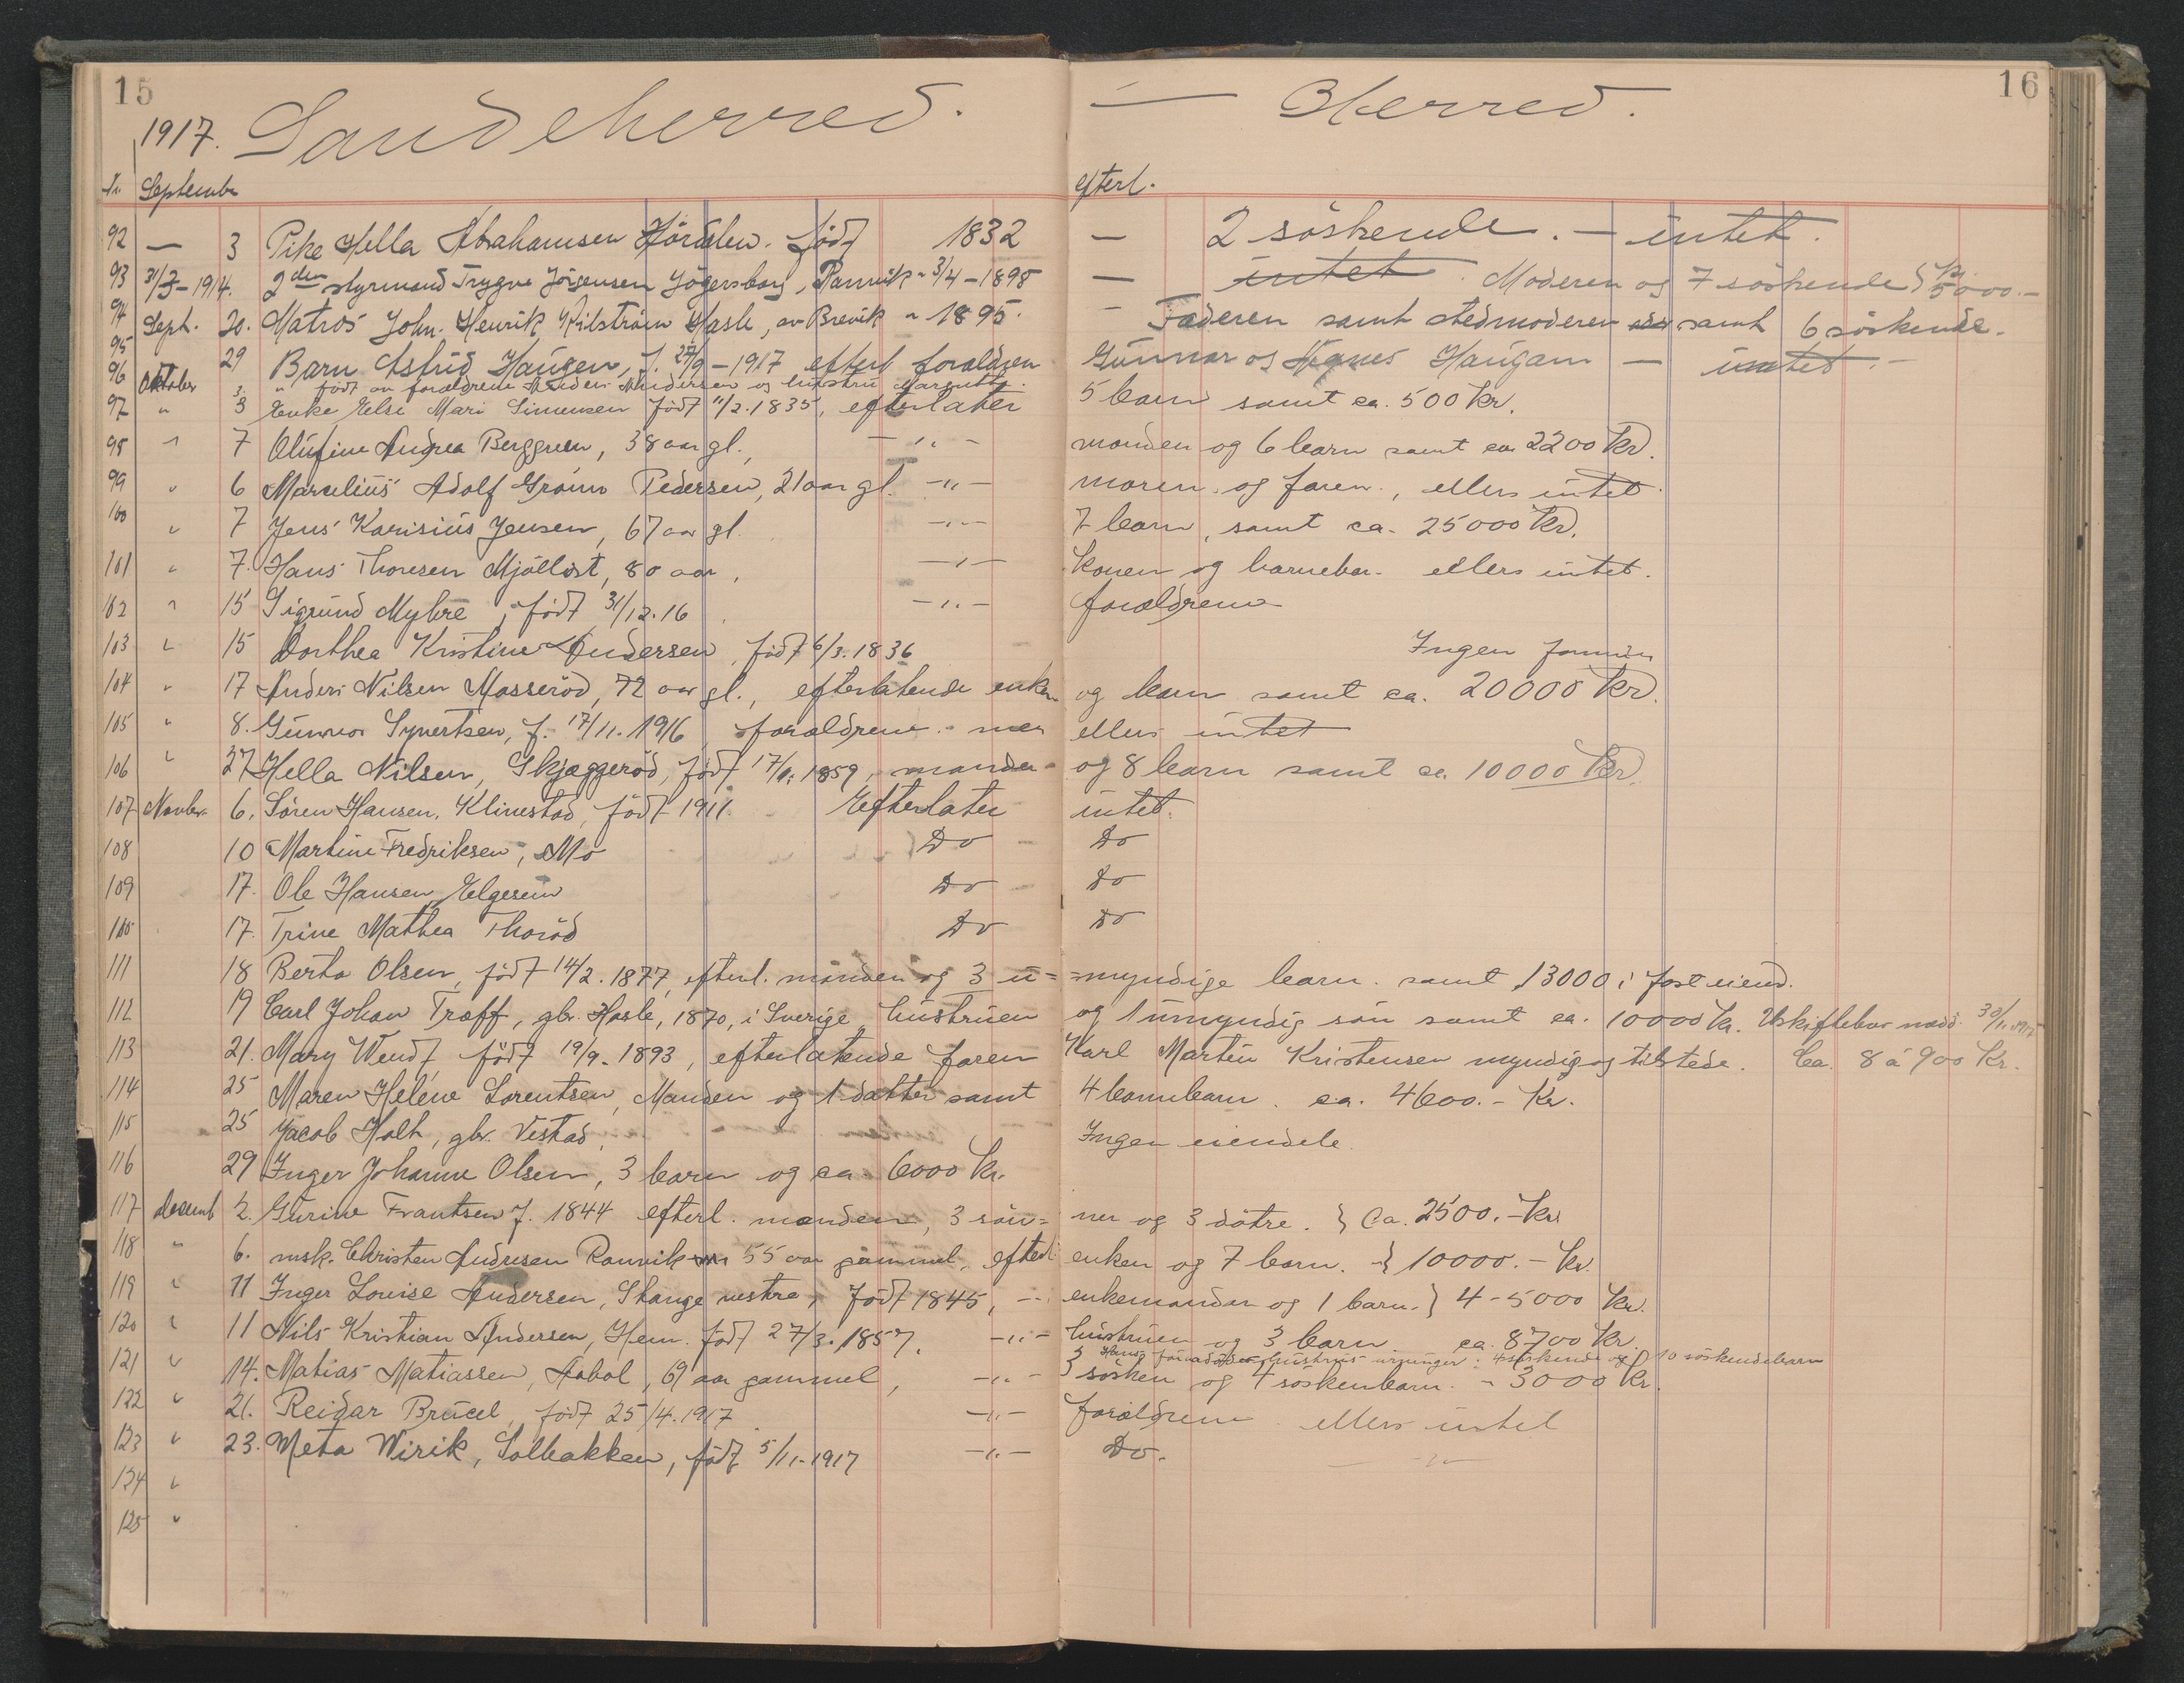 15
16
1917. Sandeherred. — Herred.
Nr September efterl.
92 — 3 Pike Hella Abrahamsen født 1832 — 2 söskende. — intet.
93 31/3-1914. 2den styrmand Trygve Jörgensen Jögersborg, Ranvik " 3/4-1898 — intet. Moderen og 7 söskende } Kr. 5000.-
94 Sept. 20. Matros John. Henrik Kilström Hasle, av Brevik " 1895. — Faderen samt stedmoderen samt 6 söskende.
95 29 Barn Astrid Haugen, f. 27/9-1917 efterl foraldren Gunnar og Agnes Haugan — intet.-
96 Oktober 3 " født av forældrene Andersen og hustru
97 " 3 Enke Else Mari Simensen født 11/2.1835, efterlater 5 barn samt ca. 500 Kr.
98 " 7 Olufine Andrea Berggreen, 38 aar gl., —"— manden og 6 barn samt ca 2200 Kr.
99 " 6 Marselius Adolf Pedersen, 21 aar gl. —"— moren og faren, ellers intet.
100 " 7 Jens Karisius Jensen, 67 aar gl. —"— 7 barn, samt ca. 25000 Kr.
101 " 7. Hans Thoresen Mjöllöst, 80 aar, —"— Konen og barnebar. ellers intet.
102 " 15 Sigrund Myhre, født 31/12.16 —"— forældrene
103 " 15 Dorthea Kristine Andersen, født 6/3.1836 Ingen
104 " 17 Anders Nilsen Masseröd, 72 aar gl., efterlatende enken og barn samt ca. 20000 Kr.
105 " 8. Gunnar Syvertsen, f. 17/11.1916, foraldrene. men ellers intet
106 " 27 Hella Nilsen, Skjæggeröd, født 17/11.1859, manden og 8 barn samt ca. 10000 Kr.
107 Novbr. 6. Sören Hansen, Klinestad, født 1911. Efterlater intet.
108 10 Martine Fredriksen, Mo Do Do
109 17. Ole Hansen Elgesem Do Do
110 17. Trine Mathea Thoröd Do Do
111 18 Berta Olsen, født 14/2.1877, efterl. manden og 3 u= =myndige barn. samt 13000 i fast eiend.
112 19 Carl Johan Træff, gbr. Hasle, 1870, i Sverige, hustruen og 1 umyndig sön samt ca. 10000 Kr. Uskiftebev. medd. 30/11.1917
113 21. Mary Wendt, født 19/9-1893, efterlatende faren Karl Martin Kristensen myndig og tilstede. Ca. 8 à 900 Kr.
114 25 Maren Helene Lorentsen, Manden og 1 datter samt 4 barnebarn. ca. 4600.- Kr.
115 25 Jacob Holt, gbr. Vestad, Ingen eiendele.
116 29 Inger Johanne Olsen, 3 barn og ca. 6000 Kr.
117 Desemb 2. Gurine Frantsen f. 1844 efterl. manden, 3 sön= ner og 3 dötre. } Ca. 2500.- Kr.
118 " 6. msk. Christen Andresen Ranvik 55 aar gammel, efterl enken og 7 barn. } 10000.- Kr.
119 " 11 Inger Lovise Andersen, Skange vestre, født 1845, —"— enkemanden og 1 barn. } 4-5000 Kr.
120 " 11 Nils Kristian Andersen, Hem. født 27/3.1857. —"— hustruen og 3 barn ca. 8700 Kr.
hustrus arvinger: 4 söskende og 10 söskendebarn
121 " 14. Matias Matiassen, Aabol, 69 aar gammel, —"— 3 sösken og 4 söskenbarn. " 3000 Kr.
122 " 21. Reidar Brucel, født 25/4.1917 —"— forældrene ellers intet
123 " 23. Meta Wirik, Solbakken, født 5/11-1917 —"— Do. —"—
124 "
125 "